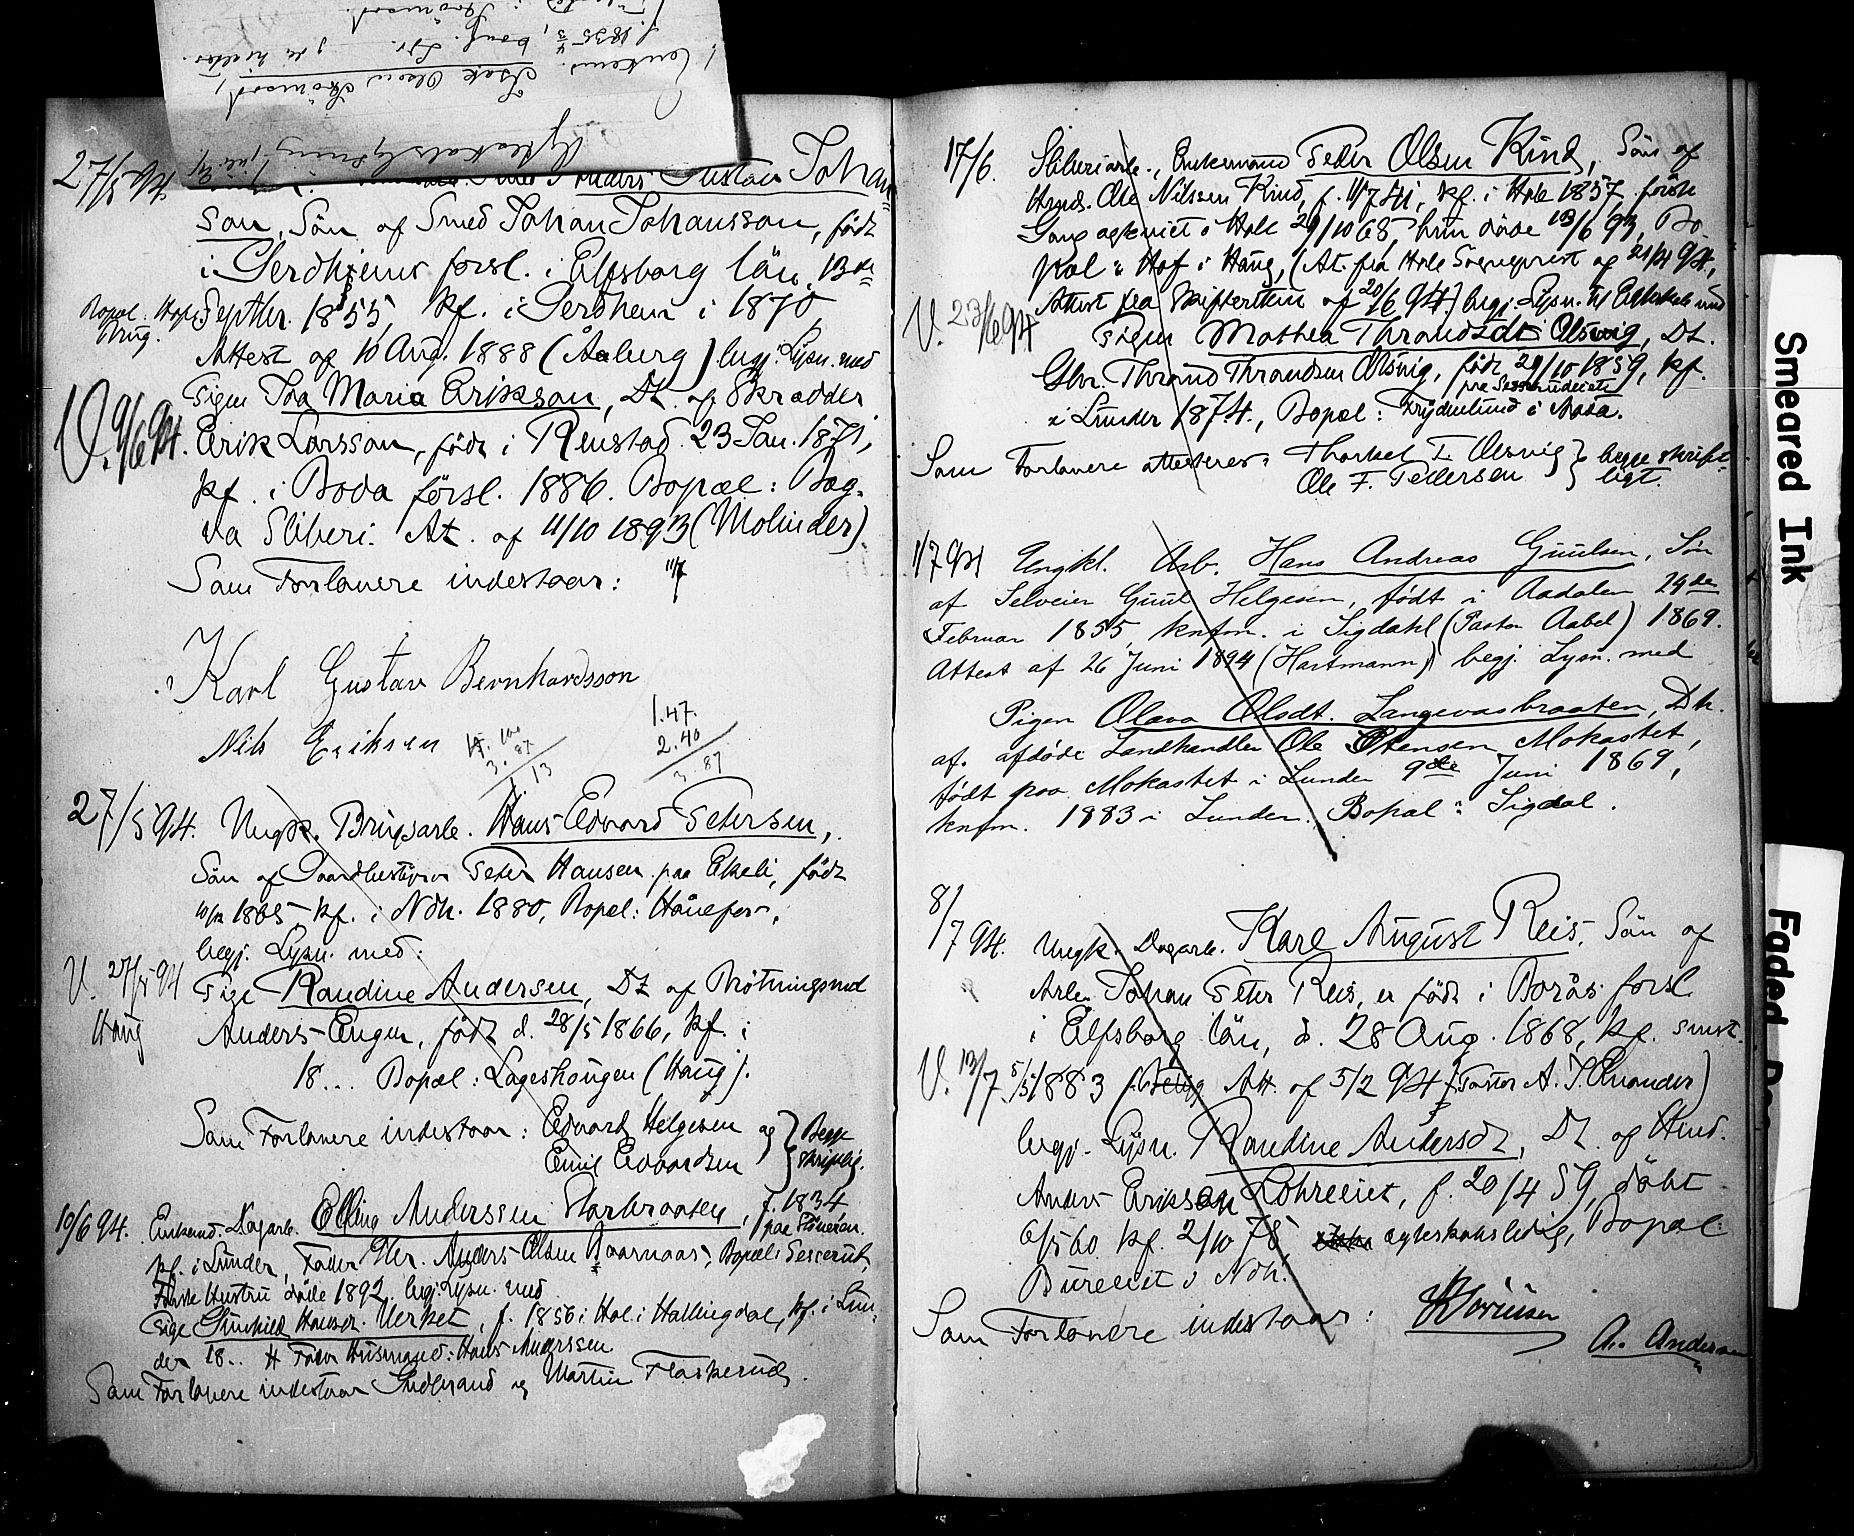 27/5 94
Gustav Johan
son, Sön af Smed Johan Johansson, född
i Gerdhems forsl. i Elfsborg län, 13de
Bopæl. Hop
Haug.
Septbr. 1855, kf. i Gerdhem i 1870,
Attest af 10 Aug. 1888 (Aaberg) begj. Lysn. med
V. 9/6 94.
Pigen Ida Maria Eriksson, Dt. af Skrædder
Erik Larsson, född i Renstad 23 Jan. 1871,
kf. i Boda försl. 1886. Bopæl: Bæg-
na Sliberi. At. af 11/10 1893 (Molinder).
Som Forlovere indestaar:
Karl Gustav Bernhardsson
Nils Eriksen
1.47.
2.40
3.87
27/5 94. Ungk. Brugsarb. Hans Edvard Petersen,
Sön af Gaardbestyrer Peter Hansen paa Ekeli, född
10/12 1865 kf. i Ndh. 1880, Bopæl: Hönefos,
begj. Lysn. med:
V. 27/5 94
Haug
Pige Randine Andersen, Dt af Brötningsmd
Anders Engen, född d. 28/5 1866, kf. i
18... Bopæl: Lageshaugen (Haug).
Som Forlovere indestaar: Edvard Helgesen og
Emil Edvardsen
Begge
skriftlig.
10/6 94. Enkemd. Dagarb. Elling Anderssen Storbraaten, f. 1834
kf. i Lunder, Fader Gbr. Anders Olsen
Förste Hustru döde 1892. begj. Lysn. med
Pige Gunhild Hansdr. Verket, f. 1856 i Hol i Hallingdal, kf. i Lun-
der 18.. Fader Husmand: Hans Anderssen
Som Forlovere indestaar Gudbrand og Martin Flaskerud.
17/6. Sliberiarb., Enkemand Peder Olsen Kind, Sön af
Hmd. Ole Nilsen Kind, f. kf. i Hole 1857, förste
Gang ægteviet i Hole 29/10 68, hun döde 13/6 93, Bo-
pæl: Hof i Haug, (At. fra Hole Sogneprest af 21/4 94,
Attest fra Skifteretten af 20/6 94.) begj. Lysn. til Ægteskab med
V. 23/6 94
Pigen Mathea Thrandsdt Olsvig, Dt.
Gbr. Thrand Thrandsen Olsvig, född 29/10 1859, kf.
i Lunder 1874., Bopæl: Frydenlund i Aasa.
Som Forlovere attesterer: Thorkel T. Olsvig
Ole F. Pedersen
begge skrift-
ligt.
1/7 94 Ungkl. Arb. Hans Andreas Guulsen, Søn
af Selveier Guul Helgesen, født i Aadalen 19de
Februar 1855, knfm. i Sigdahl (Pastor Aabel) 1869.
Attest af 26 Juni 1894 (Hartmann) begj. Lysn. med
Pigen Olava Olsdt. Langevasbraaten, Dtr.
af. afdøde Landhandler Ole Mokastet,
født paa Mokastet i Lunder 9de Juni 1869,
knfm. 1883 i Lunder. Bopæl: Sigdal.
8/7 94. Ungk. Dagarb. Karl August Reis, Sön af
Arb. Johan Peter Reis, er född i Borås forsl.
i Elfsborg län, d. 28 Aug. 1868, kf. smst.
V. 13/7
5/5 1883 Att. af 5/2 94 (Pastor A. J. Enander)
begj. Lysn. Randine Andersdt, Dt. af Hmd.
Anders Eriksen Löhreeiet, f. 20/4 59, döbt
6/5 60 kf. 2/10 75, ægteskabsledig, Bopæl:
Bureeiet i Ndh.
Som Forlovere indestaar:
A. Andersen
Smeared Ink
Faded